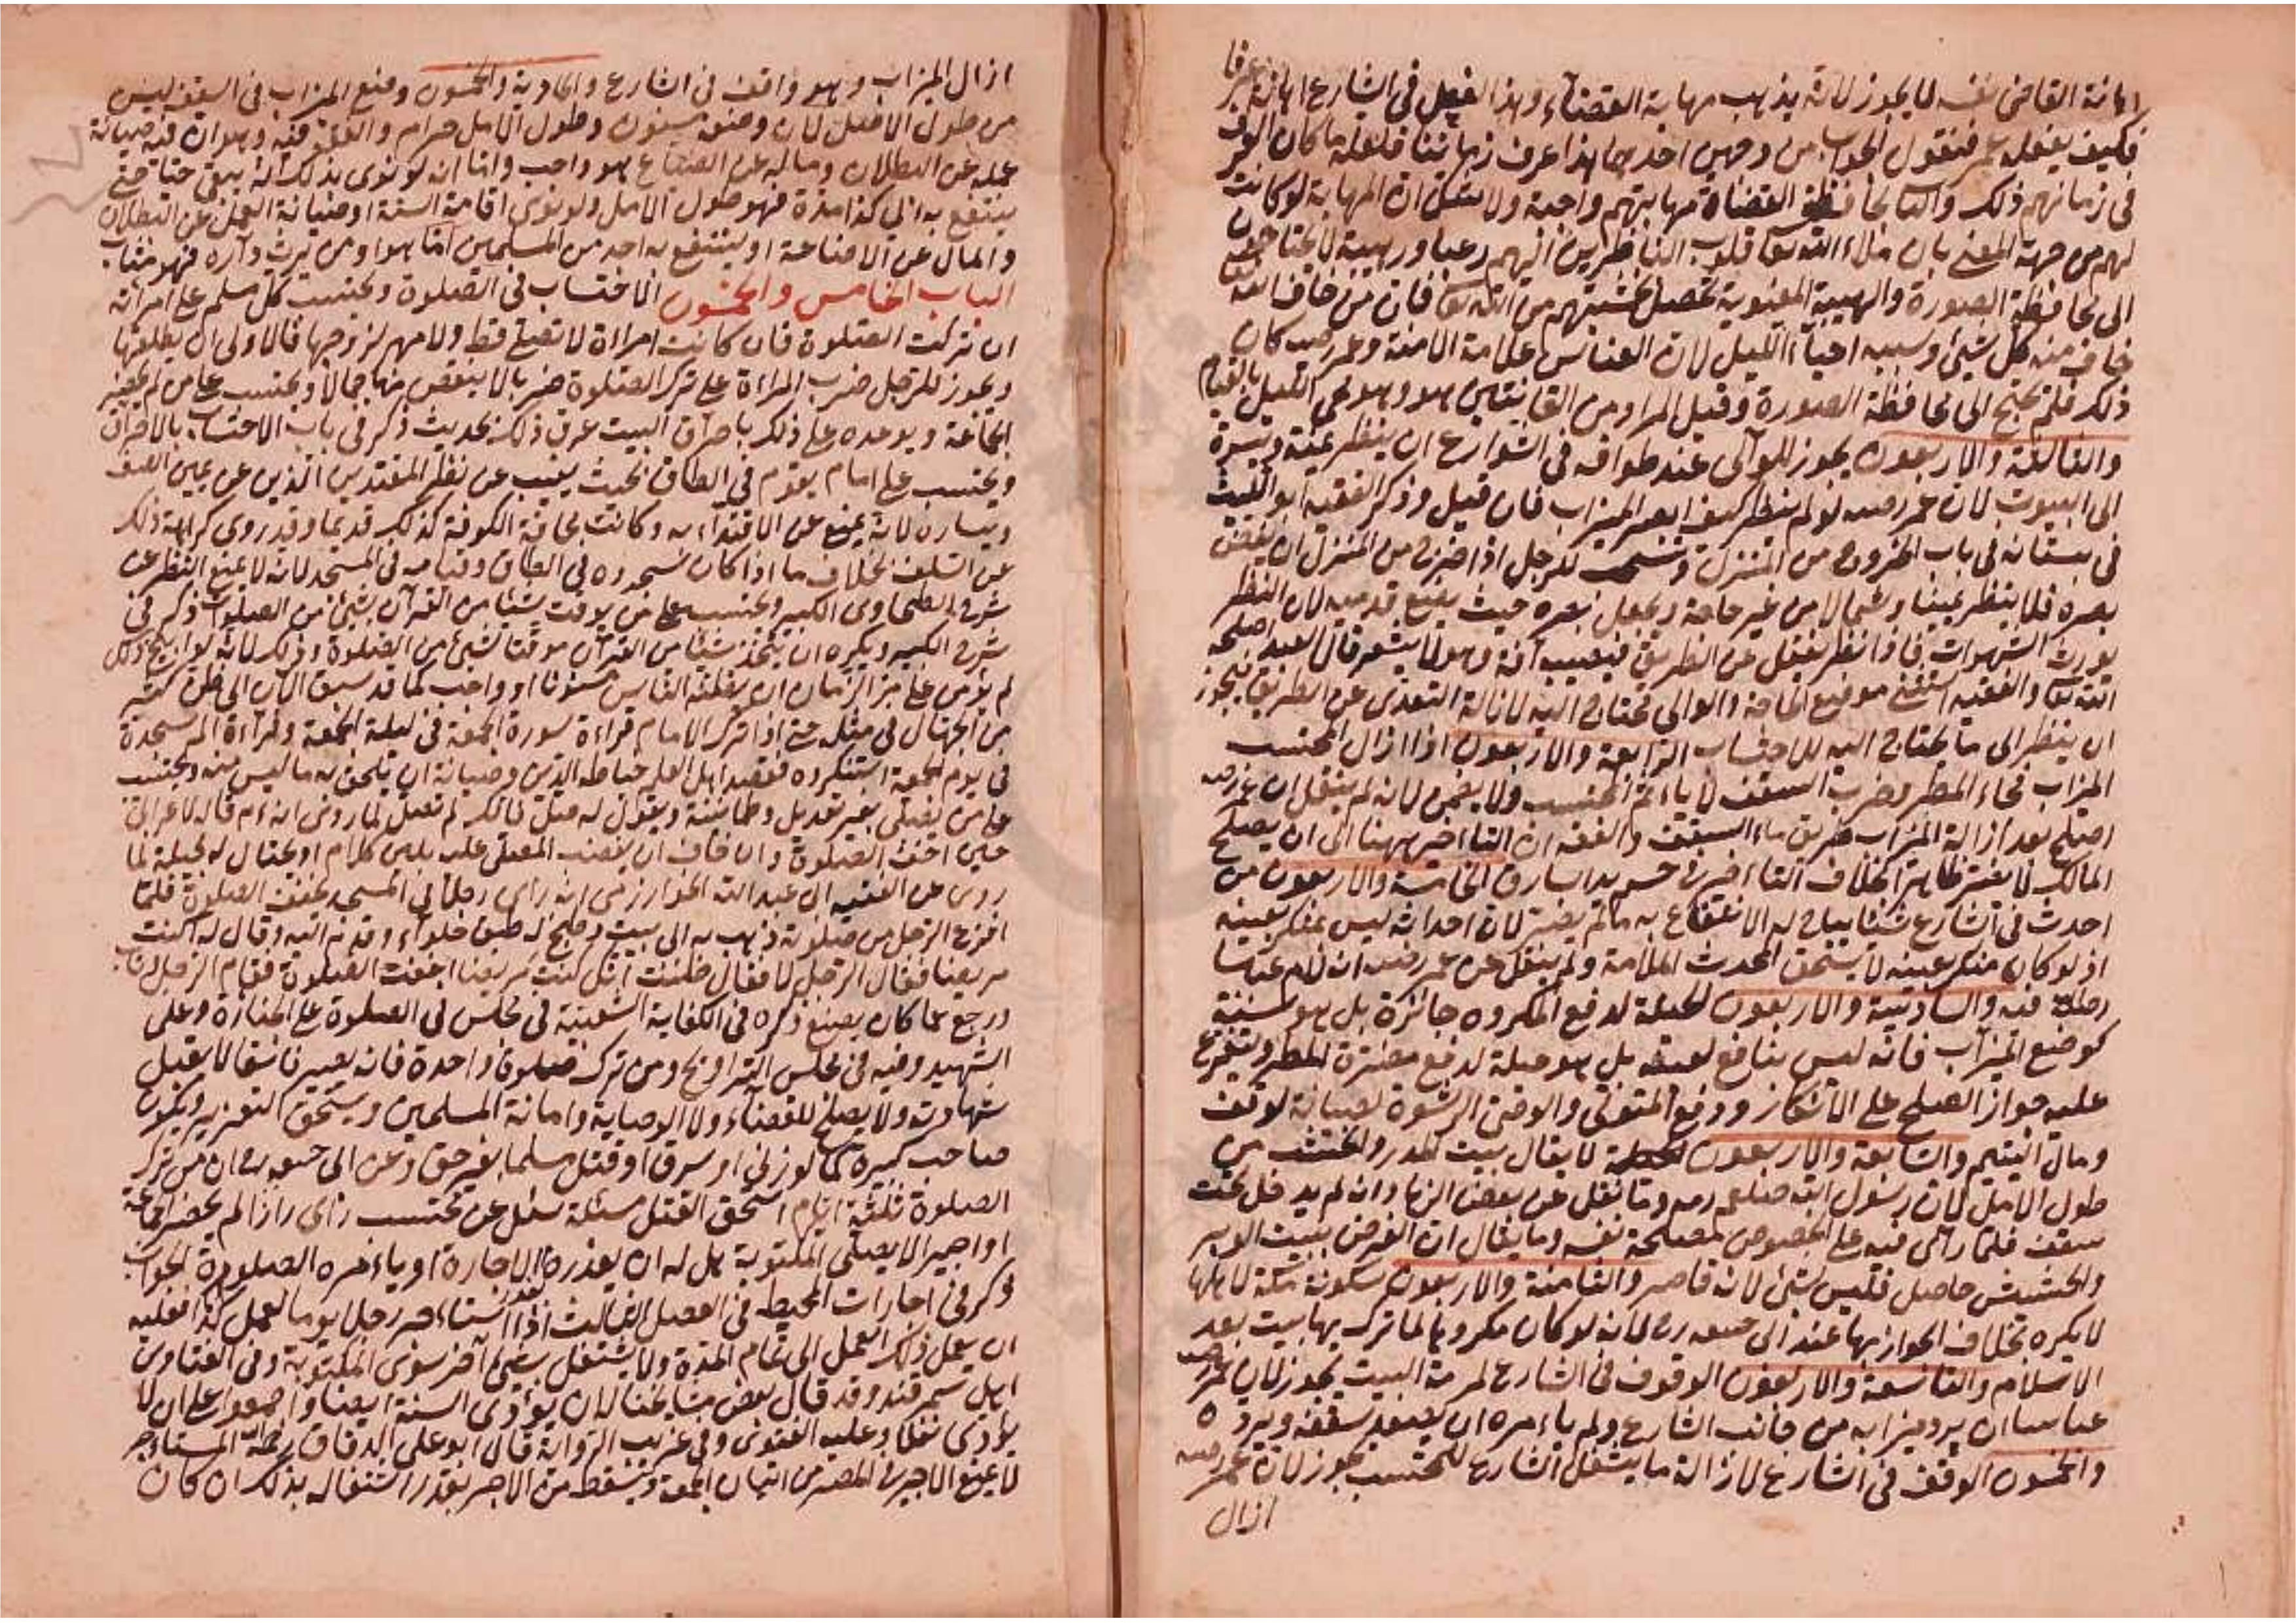 اهانة القاضى نفسه لا يجوز لانه يذهب مهابة القضاء وهذا الفعل فى الشارع اهانة عرفا
فكيف يفعله عمر فنقول الجواب من وجهين احدهما هذا عرف زماننا فلعله ما كان العرف
فى زمانهم ذلك والثانى محافظة القضاة مهابتهم واجبة ولا يشك ان المهابة لو كانت
لهم من جهة المعنى بان ملاء الله تعا قلوب الناظرين اليهم رعبا ورهبة لا يحتاجون
الى محافظة الصورة والهيبة المعنوية تحصل بخشيتهم من الله تعا فان من خاف الله تعا
خاف منه كل شيئ وسببه احياء الليل لان العناس علامة الامنة وعمر رضه كان
ذلك فلم يحتج الى محافظة الصورة وقيل المراد من القانتين هو وهو يحى الليل بالقيام
والثالثة والاربعون يجوز للوالى عند طوافه فى الشوارع ان ينظر يمنة ويسرة
الى البيوت لان عمر رضه لو لم ينظر كيف ابصر الميزاب فان قيل وذكر الفقيه ابو الليث
فى بستانه فى باب الخروج من المنزل ويستحب للرجل اذا خرج من المنزل ان يغض
بصره فلا ينظر يمينا وشمالا من غير حاجة ويجعل بصره حيث يضع قدميه لان النظر
يورث الشهوات فاذا نظر يغفل عن الطريق فيصيب آفة وهو لا يشعر قال العبد اصلحه
الله تعا والفقيه استثنى موضع الحاجة والوالى يحتاج اليه لازالة التعدى عن الطريق فيجوز
ان ينظر الى ما يحتاج اليه للاحتساب الرابعة والاربعون اذا ازال المحتسب
الميزاب فجاء المطر وضرب السقف لا ياءثم المحتسب ولا يضمن لانه لم ينقل ان عمر رضه
اصلح بعد ازالة الميزاب طريق ماء السقف والفقه ان التاءاخير ههنا الى ان يصلح
المالك لا يعتبر ظاهرا بخلاف التاءاخير فى حسم يد السارق الخامسة والاربعون من
احدث فى الشارع شيئا يباح له الانتفاع به ما لم يضر لان احداثه ليس بمنكر بعينه
اذ لو كان منكر بعينه لا يستحق المحدث الملامة ولم ينقل عن عمر رضه انه لام عباسا
رضه فيه والسادسة والاربعون الحيلة لدفع المكروه جائزة بل هو سنة
كوضع الميزاب فانه ليس بنافع لعينه بل هو حيلة لدفع مضرة المطر ويتفرع
عليه جواز الصلح على الانكار ودفع المتولى والوصى الرشوة لصيانة الوقف
ومال اليتيم والسابعة والاربعون لا يقال بيت المدر والخشب من
طول الامل لان رسول الله صلعم رمه وما نقل عن بعض الزهاد انه لم يدخل تحت
سقف فلما راى فيه على الخصوص لمصلحة نفسه وما يقال ان الغرض ببيت الوبر
والحشيش حاصل فليس بشئ لانه قاصر والثامنة والاربعون سكونة مكة لاهلها
لا يكره بخلاف الجوار بها عند ابى حنيفة رح لانه لو كان مكروها لما ترك بها بيت بعد
الاسلام والتاسعة والاربعون الوقوف فى الشارع لمرمة البيت يجوز لان عمر رضه
عباسا ان يرد ميزابه من جانب الشارع ولم ياءمره ان يصعد سقفه ويرده
والخمسون الوقف فى الشارع لازالة ما يشغل الشارع للمحتسب يجوز لان عمر رضه
ازال
ازال الميزاب وهو واقف فى الشارع والحادية والخمسون وضع الميزاب فى السقف ليس
من طول الامل لان وضعه مسنون وطول الامل حرام والفقه فيه وهو ان فيه صيانة
عمله عن البطلان وماله عن الضياع هو واجب واما ان لو نوى بذلك انه يبقى حيا حتى
ينتفع به الى كذا مدة فهو طول الامل ولو نوى اقامة السنة او صيانة العمل عن البطلان
والمال عن الاضاعة او ينتفع به احد من المسلمين اما هو او من يرث داره فهو مثاب
الباب الخامس والخمسون الاحتساب فى الصلوة ويحتسب كل مسلم على امراته
ان تركت الصلوة فان كانت امراءة لا تصلى قط ولا مهر لزوجها فالاولى ان يطلقها
ويجوز للرجل ضرب المراءة على ترك الصلوة ضربا لا ينقص منها جمالا ويحتسب على من لم يحضر
الجماعة ويوعده على ذلك باحراق البيت عرف ذلك بحديث ذكر فى باب الاحتساب بالاحراق
ويحتسب على امام يقوم فى الطاق بحيث يغيب عن نظر المقتدين الذين عن يمين الصف
ويساره لانه يمنع عن الاقتداء به وكانت بجامع الكوفة كذلك قديما وقد روى كراهة ذلك
عن السلف بخلاف ما اذا كان سجوده فى الطاق وقيامه فى المسجد لانه لا يمنع النظر عن
شرح الطحاوى الكبير ويحتسب على من يوقت شيئا من القرآن بشيئ من الصلوات ذكر فى
شرح الكبير ويكره ان يتخذ شيئا من القرآن موقتا لشيئ من الصلوة وذلك لانه لو ابيح ذلك
لم يؤمن على مر الزمان ان يظنه الناس مسنونا او واجب كما قد سبق الآن الى ظن كثير
من الجهال فى مثله حتى اذا ترك الامام قراءة سورة الجمعة فى ليلة الجمعة وقراءة الم سجدة
فى يوم الجمعة استنكروه فقصد اهل العلم حياطة الدين وصيانة ان يلحق به ما ليس منه ويحتسب
على من يصلى بغير تعديل وطمانينة ويقول له صل فانك لم تصل لما روى انه ع م قاله لاعرابى
حين اخف الصلوة وان خاف ان يغضب المصلى عليه يلين كلام او يحتال له بحيلة لما
روى عن الفقيه ابى عبد الله الخوارزمى انه راى رجلا فى المسجد يخفف الصلوة فلما
افرغ الرجل من صلوته ذهب به الى بيت وطبخ له طبق حلواء وقدمه اليه وقال له اكنت
مريضا فقال الرجل لا فقال ظننت انك كنت مريضا اخففت الصلوة فقام الرجل وتاب
ورجع عما كان يصنع ذكره فى الكفاية الشعبية فى مجلس فى الصلوة على الجنازة وعلى
الشهيد وفيه فى مجلس التراويح ومن ترك صلوة واحدة فانه يصير فاسقا لا يقبل
شهادته ولا يصلح للقضاء ولا الوصاية وامانة المسلمين ويستحق التعزير ويكون
صاحب كبيرة كما لو زنى او سرق او قتل مسلما بغير حق وعن ابى حنيفة رح ان من ترك
الصلوة ثلثة ايام استحق القتل مسئلة سئل عن محتسب راى رازا لم يحضر الجماعة
او اجيرا لا يصلى المكتوبة هل له ان يعذره الاجارة او ياءمره الصلوة الجواب
ذكر فى اجارات المحيط فى الفصل الثالث اذا استاءجر رجلا يوما ليعمل كذا فعليه
ان يعمل ذلك العمل الى تمام المدة ولا يشتغل بشيئ آخر سوى المكتوبة وفى الفتاوى
اهل سمرقند وقد قال بعض مشايخنا له ان يؤدى السنة ايضا واجمعوا على ان لا
يؤدى نفلا وعليه الفتوى وفى غريب الرواية قال ابو على الدقاق رحمه المستاءجر
لا يمنع الاجير فى المصر من اتيان الجمعة ويسقط من الاجر بقدر اشتغاله بذلك ان كان